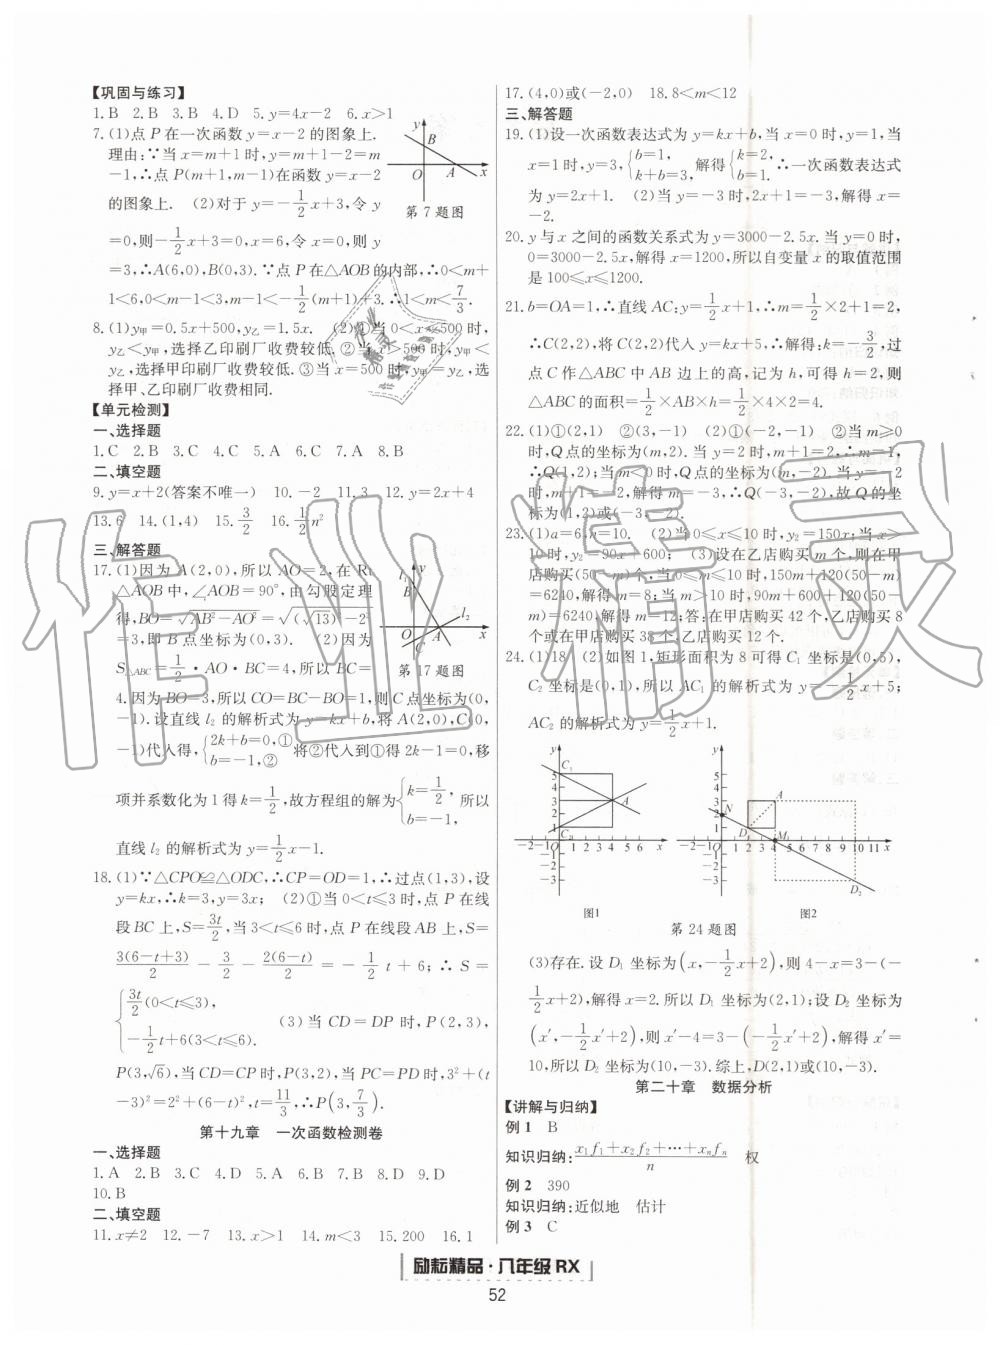 【巩固与练习】
1. B 2. B 3. B 4. D 5. y=4x-2 6. x>1
7. (1)点 P 在一次函数 y=x-2 的图象上.
理由:∵当 x=m+1 时,y=m+1-2=m
-1,∴点 P(m+1,m-1)在函数 y=x-2
的图象上. (2)对于 y=-1/2x+3,令 y
=0,则-1/2x+3=0,x=6,令 x=0,则 y
=3,∴A(6,0),B(0,3). ∵点 P 在△AOB 的内部,∴0<m+
1<6,0<m-1<3,m-1<-1/2(m+1)+3. ∴1<m<7/3.
y B O A x
第 7 题图
8. (1)y甲=0.5x+500,y乙=1.5x. (2)①当 0<x≤500 时,
y乙<y甲,选择乙印刷厂收费较低. ②当 x>500 时,y甲<
y乙,选择甲印刷厂收费较低. ③当 x=500 时,y甲=y乙,选
择甲、乙印刷厂收费相同.
【单元检测】
一、选择题
1. C 2. B 3. C 4. C 5. A 6. C 7. A 8. B
二、填空题
9. y=x+2(答案不唯一) 10. -2 11. 3 12. y=2x+4
13. 6 14. (1,4) 15. 3/2 16. 1/2n²
三、解答题
17. (1)因为 A(2,0),所以 AO=2,在 Rt
△AOB 中,∠AOB=90°,由勾股定理
得,BO=√AB²-AO²=√(√13)²-2²
=3,即 B 点坐标为(0,3). (2)因为
S△ABC=1/2·AO·BC=4,所以 BC=
4.因为 BO=3,所以 CO=BC-BO=1,则 C 点坐标为(0,
-1). 设直线 l₂ 的解析式为 y=kx+b,将 A(2,0),C(0,
-1)代入得,{2k+b=0,① b=-1,② 将②代入到①得 2k-1=0,移
项并系数化为 1 得 k=1/2,故方程组的解为{k=1/2, b=-1, 所以
直线 l₂ 的解析式为 y=1/2x-1.
l₁ y B l₂ O A x C
第 17 题图
18. (1)∵△CPO≌△ODC,∴CP=OD=1,∴过点(1,3),设
y=kx,∴k=3,y=3x; (2)①当 0<t≤3 时,点 P 在线
段 BC 上,S=3t/2,当 3<t≤6 时,点 P 在线段 AB 上,S=
3(6-t+3)/2 - 3/2 - 2(6-t)/2 = -1/2 t+6;∴S=
{3t/2(0<t≤3), -1/2t+6(3<t≤6). (3)当 CD=DP 时,P(2,3),
P(3,√6),当 CD=CP 时,P(3,2),当 PC=PD 时,3²+(t
-3)²=2²+(6-t)²,t=11/3,∴P(3,7/3).
第十九章 一次函数检测卷
一、选择题
1. A 2. B 3. D 4. D 5. A 6. B 7. D 8. D 9. D
10. B
二、填空题
11. x≠2 12. -7 13. x>1 14. m<3 15. 200 16. 1
17. (4,0)或(-2,0) 18. 8<m<12
三、解答题
19. (1)设一次函数表达式为 y=kx+b,当 x=0 时,y=1,当
x=1 时,y=3,{b=1, k+b=3, 解得{k=2, b=1. ∴一次函数表达式
为 y=2x+1. (2)当 y=-3 时,2x+1=-3,解得 x=
-2.
20. y 与 x 之间的函数关系式为 y=3000-2.5x. 当 y=0 时,
0=3000-2.5x,解得 x=1200,所以自变量 x 的取值范围
是 100≤x≤1200.
21. b=OA=1,∴直线 AC:y=1/2x+1,∴m=1/2×2+1=2,
∴C(2,2),将 C(2,2)代入 y=kx+5,∴解得:k=-3/2,过
点 C 作△ABC 中 AB 边上的高,记为 h,可得 h=2,则
△ABC 的面积=1/2×AB×h=1/2×4×2=4.
22. (1)①(2,1) ②(3,-1) (2)①(-2,-2) ②当 m≥0
时,Q 点的坐标为(m,2). 当 y=2 时,m+1=2,∴m=1.
∴Q(1,2);当 m<0 时,Q 点的坐标为(m,-2). 当 y=-2
时,m+1=-2,解得 m=-3,∴Q(-3,-2),故 Q 的坐
标为(1,2)或(-3,-2).
23. (1)a=6,b=10. (2)当 0≤x≤10 时,y₂=150x;当 x>
10 时,y₂=90x+600; (3)设在乙店购买 m 个,则在甲
店购买(50-m)个,当 0≤m≤10 时,150m+120(50-m)
=6240,解得 m=8;当 m>10 时,90m+600+120(50-
m)=6240,解得 m=12;答:在甲店购买 42 个,乙店购买 8
个或在甲店购买 38 个,乙店购买 12 个.
24. (1)18 (2)如图 1,矩形面积为 8 可得 C₁ 坐标是(0,5),
C₂ 坐标是(0,1),所以 AC₁ 的解析式为 y=-1/2x+5;
AC₂ 的解析式为 y=1/2x+1.
图1
图2
第 24 题图
(3)存在. 设 D₁ 坐标为(x,-1/2x+2),则 4-x=3-(-
1/2x+2),解得 x=2. 所以 D₁ 坐标为(2,1);设 D₂ 坐标为
(x′,-1/2x′+2),则 x′-4=3-(-1/2x′+2),解得 x′=
10,所以 D₂ 坐标为(10,-3). 综上,D(2,1)或(10,-3).
第二十章 数据分析
【讲解与归纳】
例 1 B
知识归纳:x₁f₁+x₂f₂+…+xₙfₙ/n 权
例 2 390
知识归纳:近似地 估计
例 3 C
励耘精品·八年级 RX
52
作业精灵